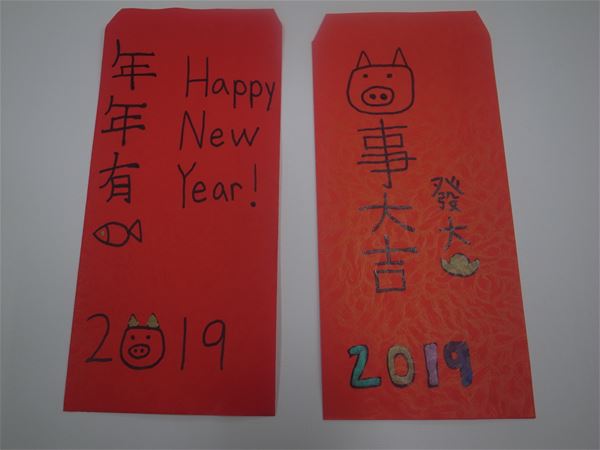 年年有
Happy
New
Year!
2019
事大吉
發大
2019